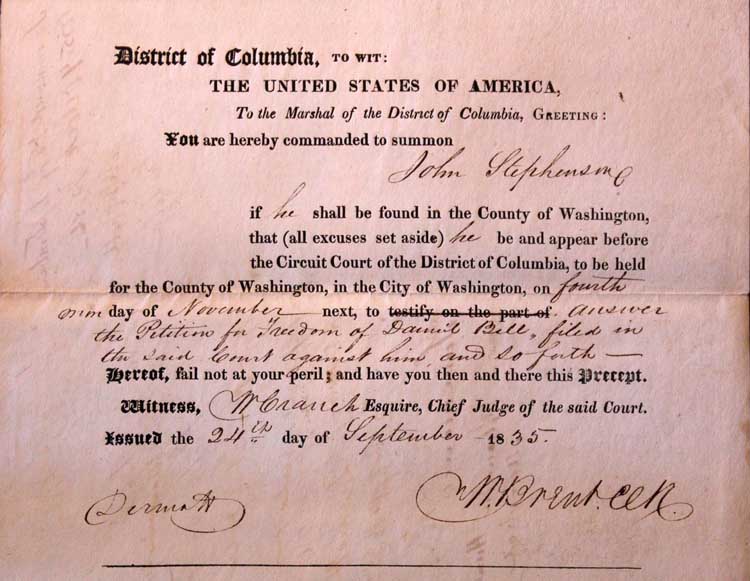 District of Columbia, TO WIT:
THE UNITED STATES OF AMERICA,
To the Marshal of the District of Columbia, GREETING:
You are hereby commanded to summon
John Stephenson
if he shall be found in the County of Washington,
that (all excuses set aside) he be and appear before
the Circuit Court of the District of Columbia, to be held
for the County of Washington, in the City of Washington, on fourth
mon day of November next, to testify on the part of. answer
the Petition for Freedom of Daniel Bell, filed in
the said Court against him and so forth —
Hereof, fail not at your peril; and have you then and there this Precept.
Witness, W Cranch Esquire, Chief Judge of the said Court.
Issued the 24th day of September 1835.
W. Brent. Clk.